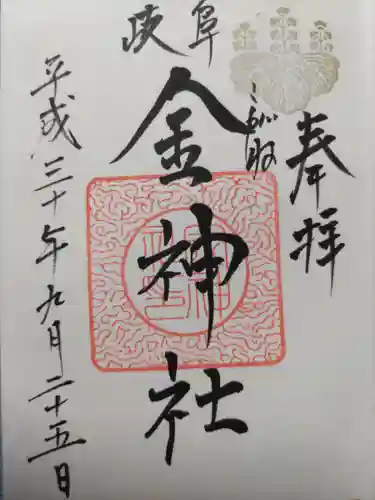 奉拝
岐阜
こがね
金神社
平成三十年九月二十五日